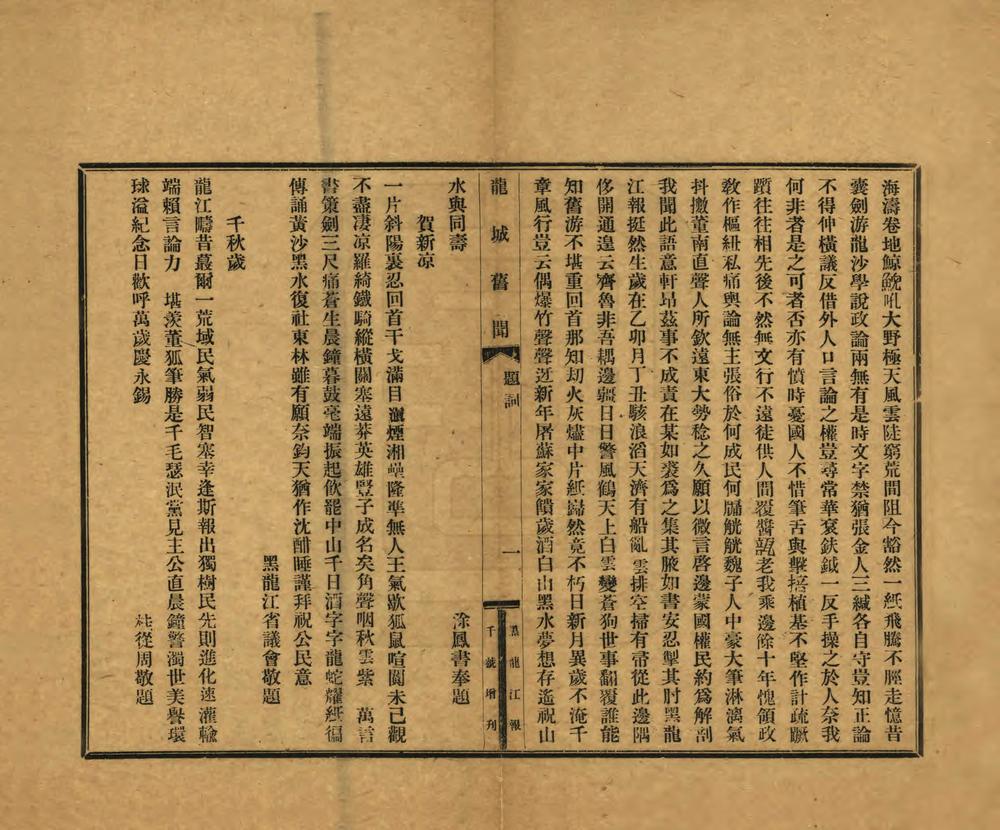 海濤卷地鯨鯢吼大野極天風雲陡窮荒間阻今豁然一紙飛騰不脛走憶昔
囊劍游龍沙學說政論兩無有是時文字禁猶張金人三緘各自守豈知正論
不得伸橫議反借外人口言論之權豈尋常華袞鈇鉞一反手操之於人奈我
何非者是之可者否亦有憤時憂國人不惜筆舌與擊掊植基不堅作計疏蹶
躓往往相先後不然無文行不遠徒供人間覆醬瓿老我乘邊餘十年愧領政
敎作樞紐私痛輿論無主張俗於何成民何牖觥觥魏子人中豪大筆淋漓氣
抖擻董南直聲人所欽遠東大勢稔之久願以微言啓邊蒙國權民約爲解剖
我聞此語意軒昻茲事不成責在某如裘爲之集其腋如書安忍掣其肘黑龍
江報挺然生歲在乙卯月丁丑駭浪滔天濟有船亂雲排空掃有帚從此邊隅
侈開通遑云齊魯非吾耦邊疆日日警風鶴天上白雲變蒼狗世事翻覆誰能
知舊游不堪重回首那知刧火灰燼中片紙巋然竟不朽日新月異歲不淹千
章風行豈云偶爆竹聲聲迓新年屠蘇家家饋歲酒白山黑水夢想存遙祝山
龍城舊聞 題詞 一 黑龍江報千號增刊
水與同壽 涂鳳書奉題
賀新凉
一片斜陽裏忍回首干戈滿目 煙湘 隆準無人王氣歇狐鼠喧闐未已觀
不盡凄凉羅綺鐵騎縱橫關塞遠莽英雄豎子成名矣角聲咽秋雲紫 萬言
書策劍三尺痛蒼生晨鐘暮鼓毫端振起飮罷中山千日酒字字龍蛇耀紙徧
傳誦黃沙黑水復社東林雖有願奈鈞天猶作沈酣睡謹拜祝公民意
黑龍江省議會敬題
千秋歲
龍江疇昔蕞爾一荒域民氣弱民智塞幸逢斯報出獨樹民先則進化速灌輸
端賴言論力 堪羨董狐筆勝是千毛瑟泯黨見主公直晨鐘警濁世美譽環
球溢紀念日歡呼萬歲慶永錫 從周敬題